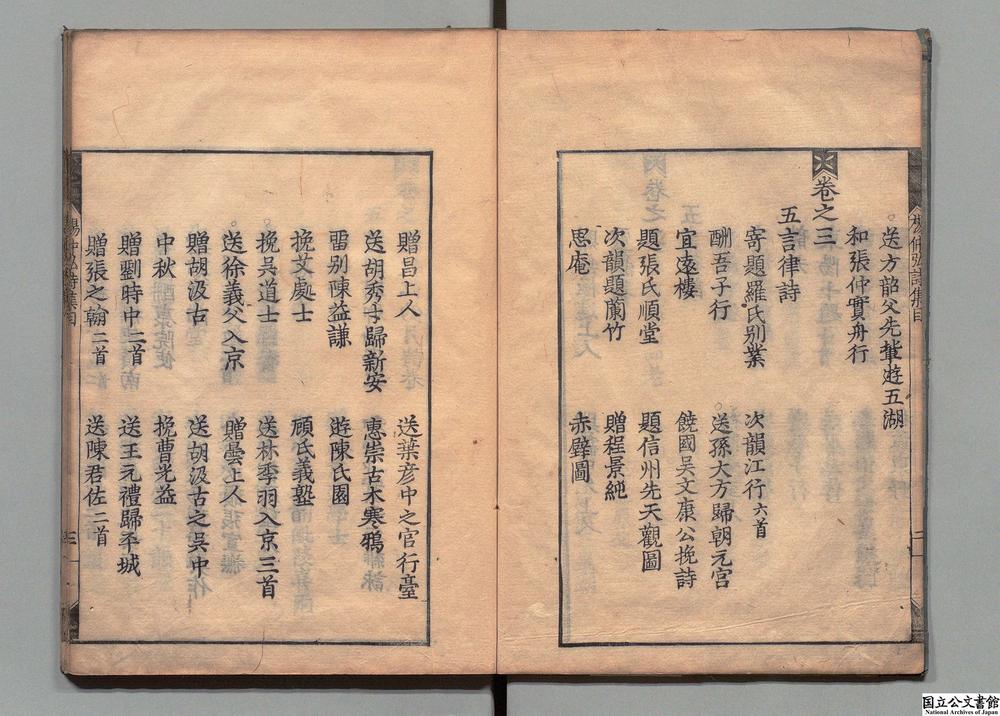 送方韶父先輩遊五湖
和張仲實舟行
卷之三
五言律詩
寄題羅氏别業
次韻江行六首
酬吾子行
送孫大方歸朝元宮
宜遠樓
饒國吳文康公挽詩
題張氏順堂
題信州先天觀圖
次韻題蘭竹
贈程景純
思庵
赤壁圖
楊仲弘詩集目
二
贈昌上人
送葉彦中之官行臺
送胡秀才歸新安
惠崇古木寒鴉
畱别陳益謙
遊陳氏園
挽艾處士
顧氏義塾
挽吳道士
送林季羽入京三首
送徐義父入京
贈曇上人
贈胡汲古
送胡汲古之吳中
中秋
挽曹光益
贈劉時中二首
送王元禮歸平城
贈張之翰二首
送陳君佐二首
楊仲弘詩集目
三
国立公文書館
National Archives of Japan